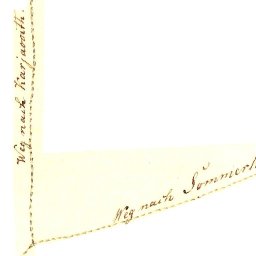 Weg nach Karjawith.
Weg nach Sommerh